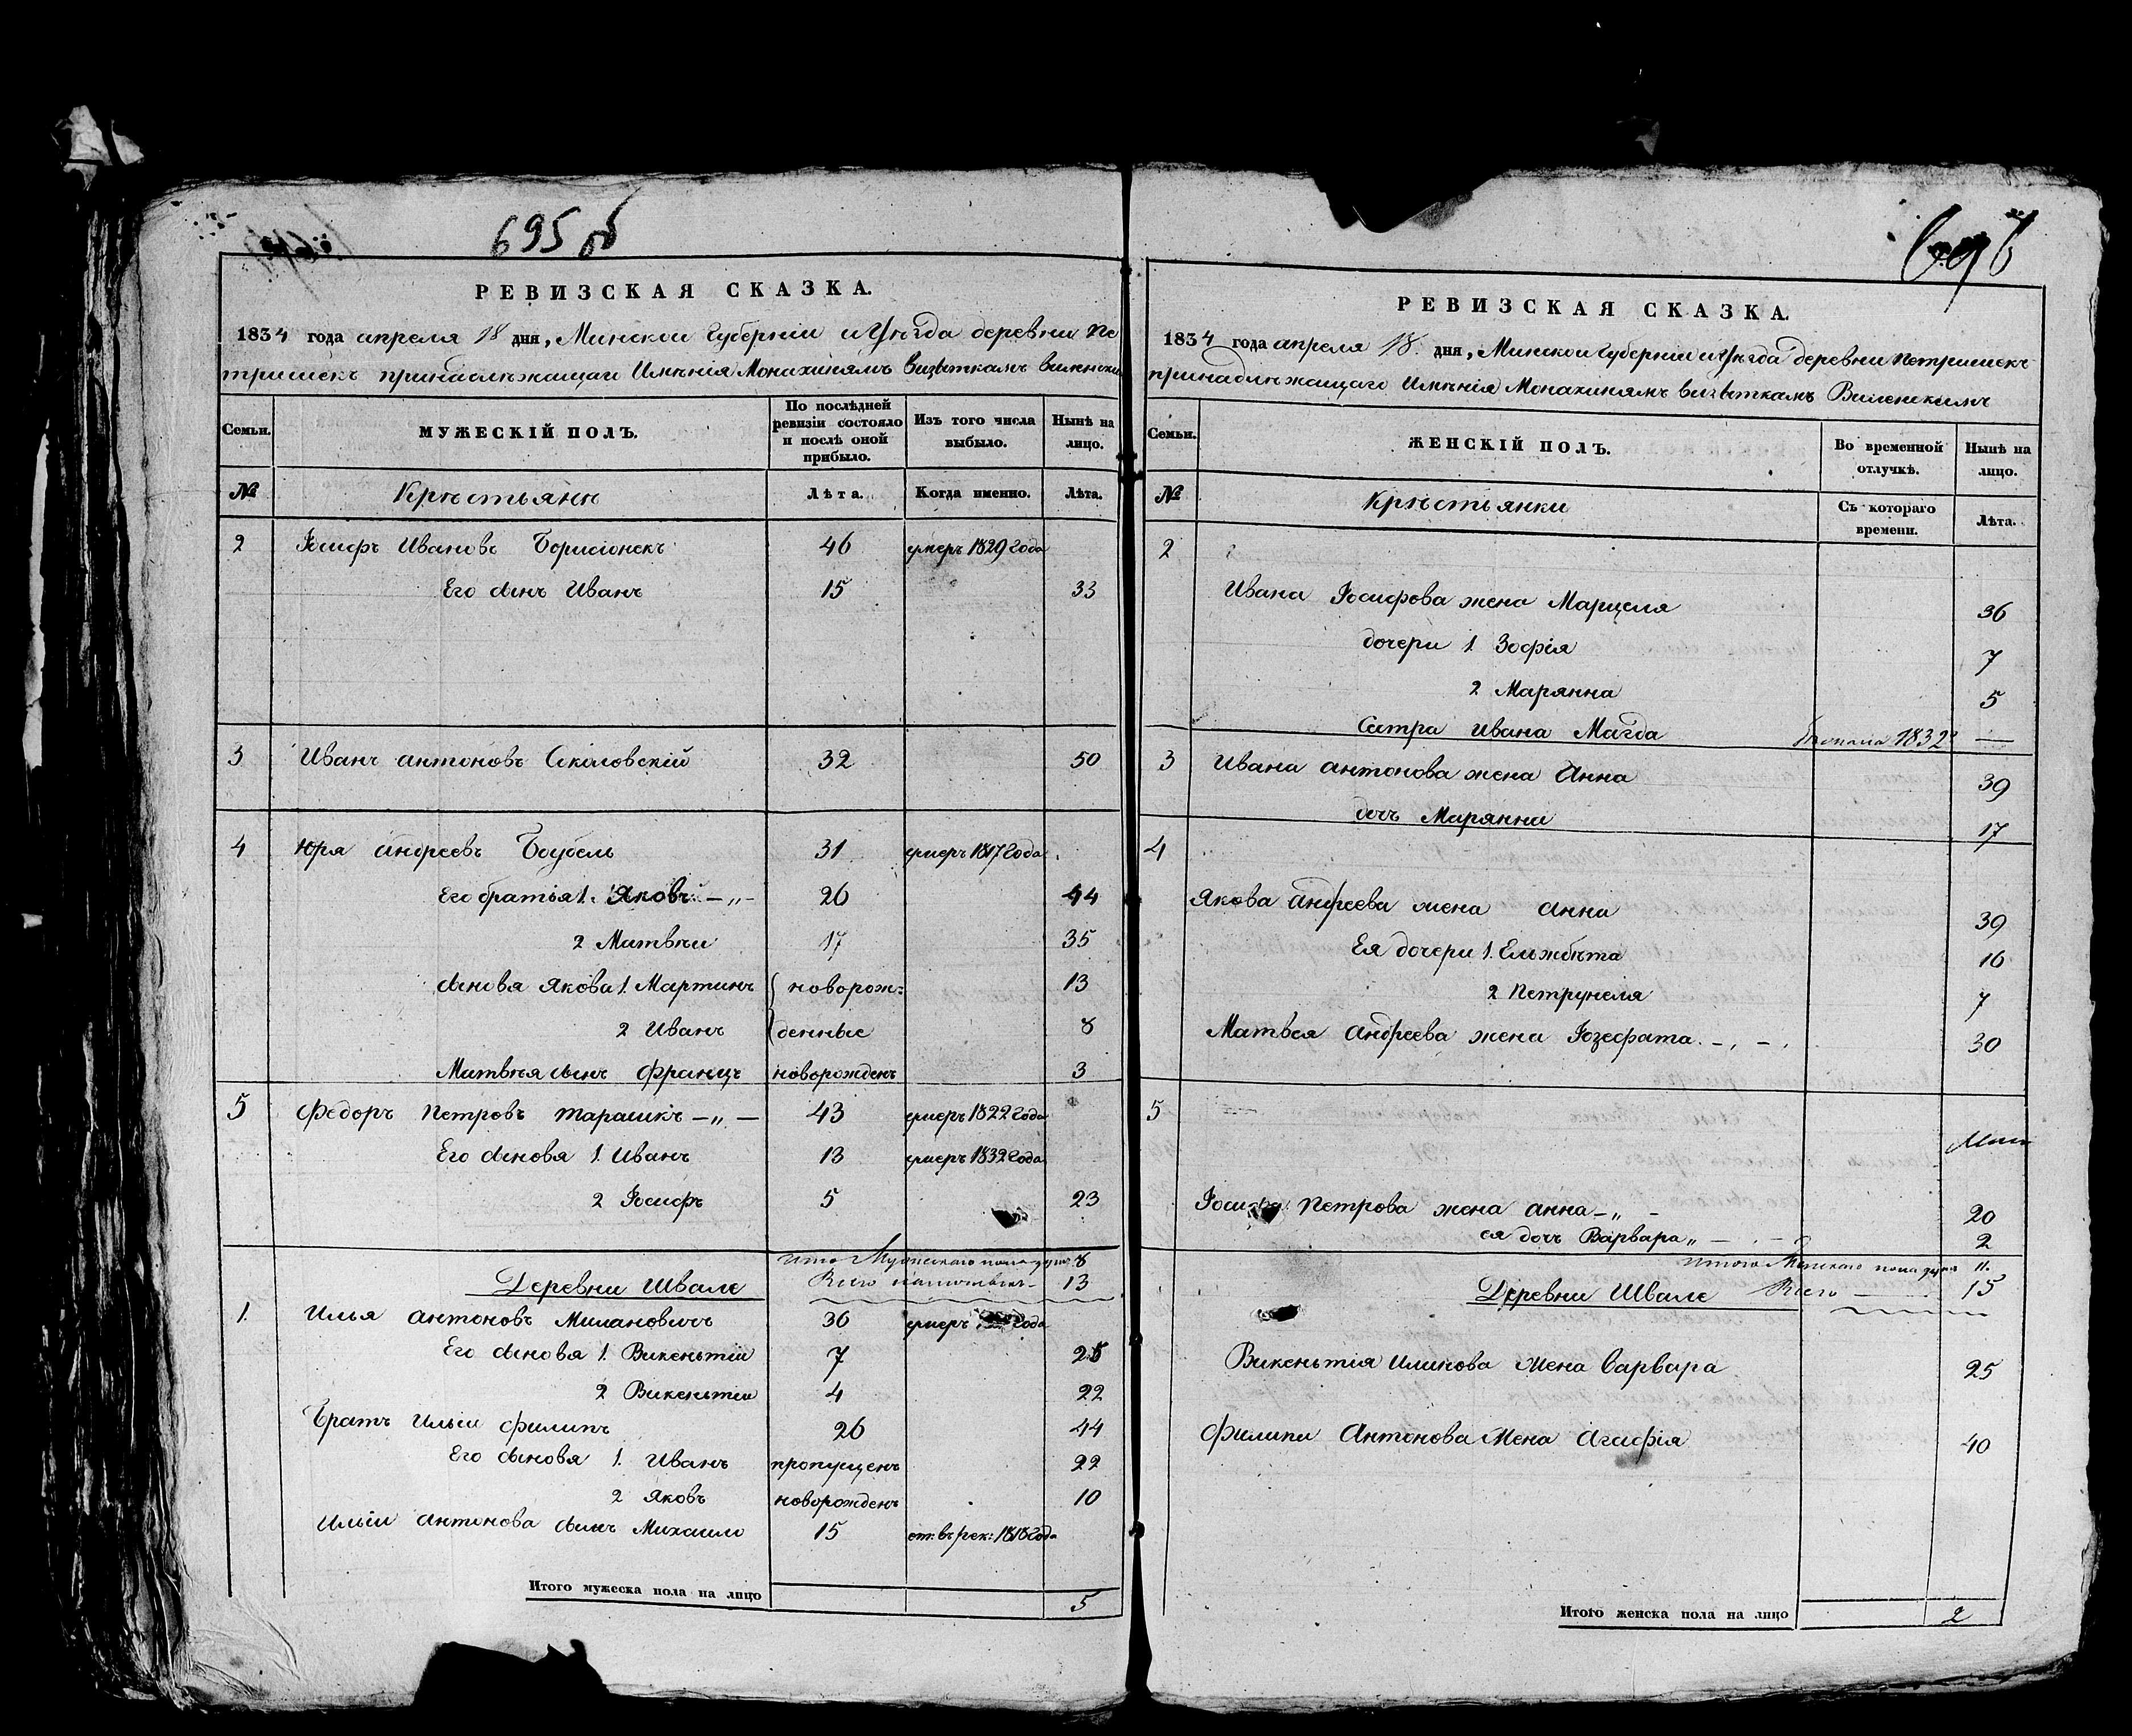 695 об
РЕВИЗСКАЯ СКАЗКА.
1834 года апреля 18 дня, Минской Губернiи и Уѣзда деревни Пе
тришекъ принадлѣжащаго Имѣнiя Монахинямъ визыткамъ
Семьи. МУЖЕСКIЙ ПОЛЪ. По послѣдней ревизiи состояло и послѣ оной прибыло. Изъ того числа выбыло. Нынѣ на лицо.
№ Крѣстьянѣ Лѣта. Когда именно. Лѣта.
2 Iосифъ Ивановъ 46 умеръ 1829 года
Его сынъ Иванъ 15 33
3 Иванъ антоновъ Соколовскiй 32 50
4 Юря андреевъ 31 умеръ 1817 года
Его братiя 1. Яковъ — „ — 26 44
2 Матвѣи 17 35
сыновя Якова 1. Мартинъ новорож= 13
2 Иванъ денные 8
Матвѣя сынъ Францъ новорожденъ 3
5 Федоръ Петровъ Тарашкъ — „ — 43 умеръ 1822 года
Его сыновя 1. Иванъ 13 умеръ 1832 года
2 Iосифъ 5 23
Итого Мужескаго пола душъ 8
Всего наличныхъ 13
Деревни Швалѣ
1. Илья антоновъ Милановичъ 36 умеръ года
Его сыновя 1. Викентiи 7 25
2 Викентiи 4 22
Братъ Ильи Филипъ 26 44
Его сыновя 1. Иванъ пропущенъ 22
2 Яковъ новорожденъ 10
Ильи антонова сынъ Михаило 15 от: въ рек: 1818 года
Итого мужеска пола на лицо 5
696
РЕВИЗСКАЯ СКАЗКА.
1834 года апреля 18. дня, Минской Губернiи и Уѣзда деревни Петришекъ
принадлѣжащаго Имѣнiя Монахинямъ визыткамъ Виленскимъ
Семьи. ЖЕНСКIЙ ПОЛЪ. Во временной отлучкѣ. Нынѣ на лицо.
№ Крѣстьянки Съ котораго времени. Лѣта.
2
Ивана Iосифова жена Марцеля 36
дочери 1. Зофiя 7
2 Марянна 5
Сѣстра Ивана Магда 1832 —
3 Ивана антонова жена Анна 39
дочъ Марянна 17
4
Якова андреева жена анна 39
Ея дочери 1. Ельжбѣта 16
2 Петрунеля 7
Матвея андреева жена Iозефата. — , — . 30
5
Iосифа Петрова жена анна — „ — 20
ея дочъ Варвара „ — 2
Итого Женскаго пола душъ 11.
Деревни Швалѣ Всего 15
Викентiя Илинова жена варвара 25
Филипа Антонова жена агафiя 40
Итого женска пола на лицо 2